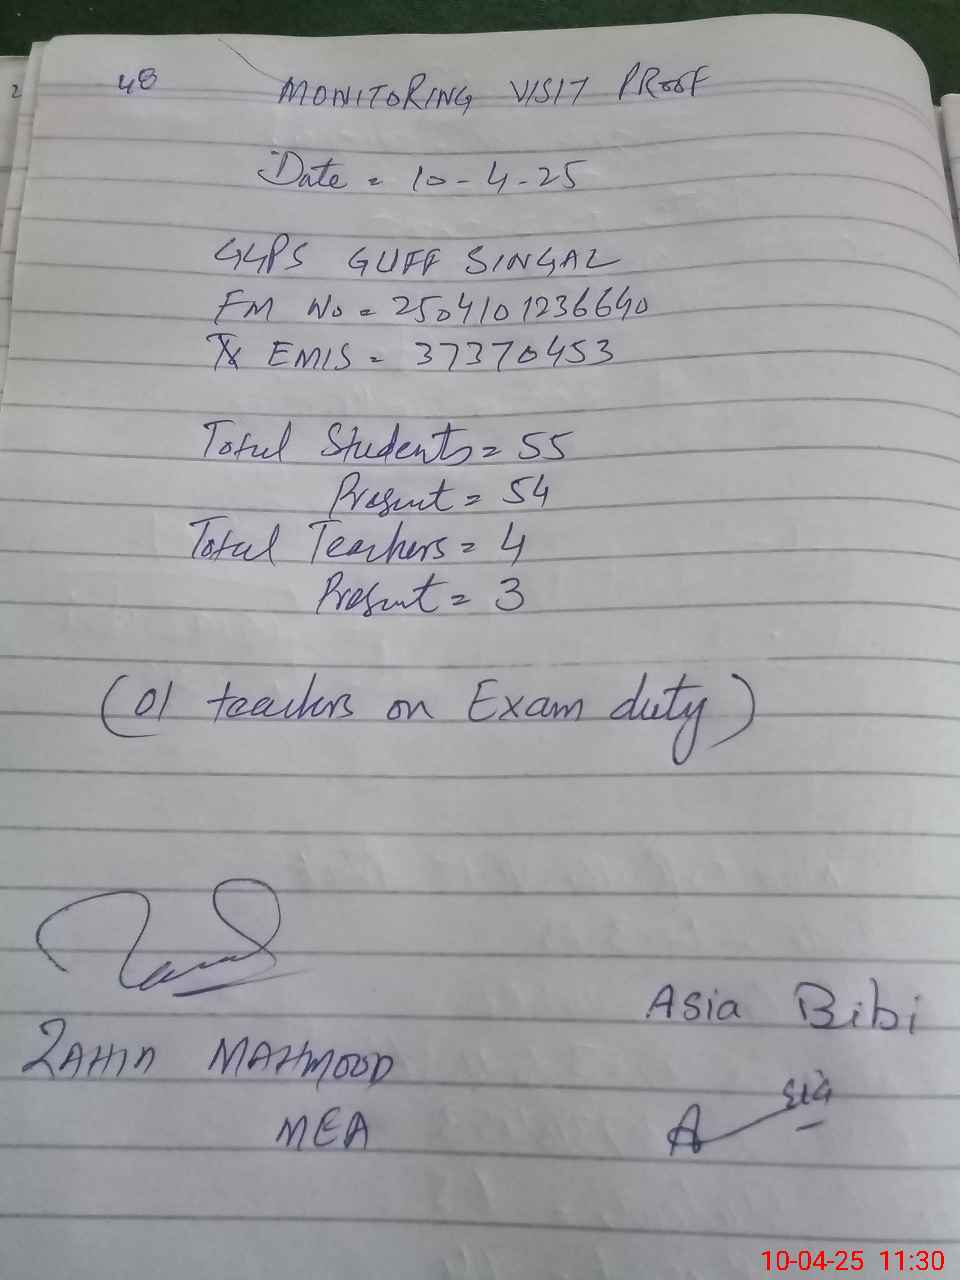 2
48
MONITORING VISIT PROOF
Date = 10-4-25
GGPS GUFF SINGAL
FM No = 2504101236640
EMIS = 37370453
Total Students = 55
Present = 54
Total Teachers = 4
Present = 3
(01 teachers on Exam duty)
Asia Bibi
ZAHID MAHMOOD
MEA
Asia
10-04-25 11:30